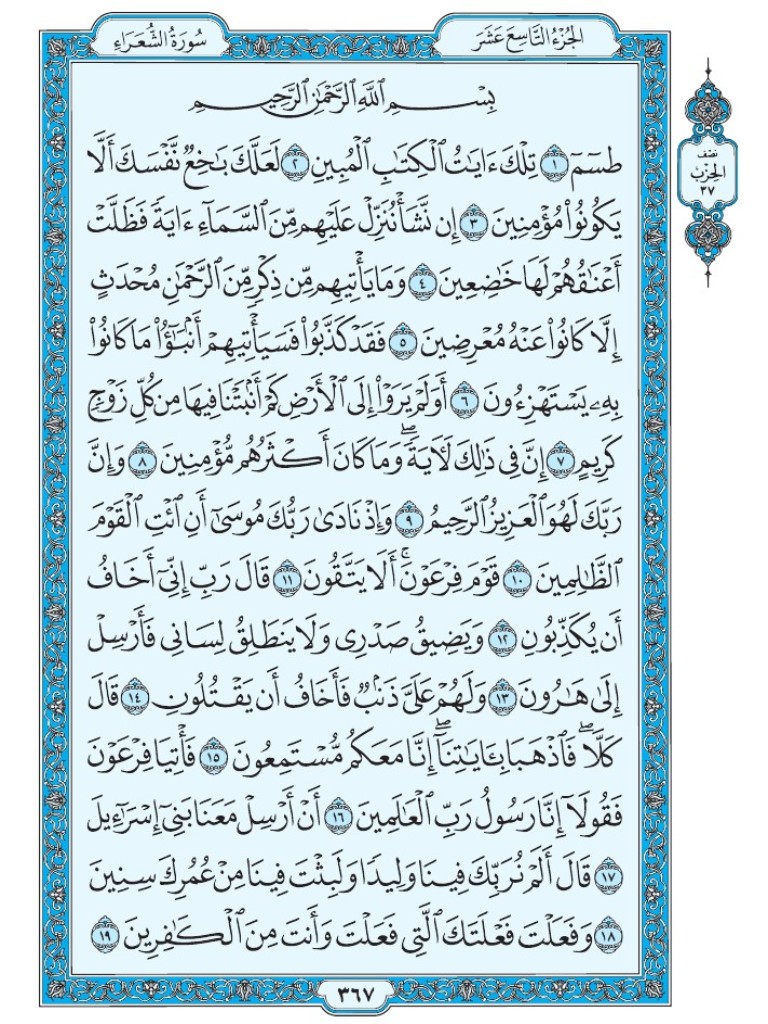 الجُزْءُ التَّاسِعَ عَشَرَ
سُورَةُ الشُّعَرَاءِ
بِسْمِ ٱللَّهِ ٱلرَّحْمَٰنِ ٱلرَّحِيمِ
طسٓمٓ ١ تِلْكَ ءَايَٰتُ ٱلْكِتَٰبِ ٱلْمُبِينِ ٢ لَعَلَّكَ بَٰخِعٌ نَّفْسَكَ أَلَّا
يَكُونُوا۟ مُؤْمِنِينَ ٣ إِن نَّشَأْ نُنَزِّلْ عَلَيْهِم مِّنَ ٱلسَّمَآءِ ءَايَةً فَظَلَّتْ
أَعْنَٰقُهُمْ لَهَا خَٰضِعِينَ ٤ وَمَا يَأْتِيهِم مِّن ذِكْرٍ مِّنَ ٱلرَّحْمَٰنِ مُحْدَثٍ
إِلَّا كَانُوا۟ عَنْهُ مُعْرِضِينَ ٥ فَقَدْ كَذَّبُوا۟ فَسَيَأْتِيهِمْ أَنۢبَٰٓؤُا۟ مَا كَانُوا۟
بِهِۦ يَسْتَهْزِءُونَ ٦ أَوَلَمْ يَرَوْا۟ إِلَى ٱلْأَرْضِ كَمْ أَنۢبَتْنَا فِيهَا مِن كُلِّ زَوْجٍ
كَرِيمٍ ٧ إِنَّ فِى ذَٰلِكَ لَءَايَةً ۖ وَمَا كَانَ أَكْثَرُهُم مُّؤْمِنِينَ ٨ وَإِنَّ
رَبَّكَ لَهُوَ ٱلْعَزِيزُ ٱلرَّحِيمُ ٩ وَإِذْ نَادَىٰ رَبُّكَ مُوسَىٰٓ أَنِ ٱئْتِ ٱلْقَوْمَ
ٱلظَّٰلِمِينَ ١٠ قَوْمَ فِرْعَوْنَ ۚ أَلَا يَتَّقُونَ ١١ قَالَ رَبِّ إِنِّىٓ أَخَافُ
أَن يُكَذِّبُونِ ١٢ وَيَضِيقُ صَدْرِى وَلَا يَنطَلِقُ لِسَانِى فَأَرْسِلْ
إِلَىٰ هَٰرُونَ ١٣ وَلَهُمْ عَلَىَّ ذَنۢبٌ فَأَخَافُ أَن يَقْتُلُونِ ١٤ قَالَ
كَلَّا ۖ فَٱذْهَبَا بِـَٔايَٰتِنَآ ۖ إِنَّا مَعَكُم مُّسْتَمِعُونَ ١٥ فَأْتِيَا فِرْعَوْنَ
فَقُولَآ إِنَّا رَسُولُ رَبِّ ٱلْعَٰلَمِينَ ١٦ أَنْ أَرْسِلْ مَعَنَا بَنِىٓ إِسْرَٰٓءِيلَ
١٧ قَالَ أَلَمْ نُرَبِّكَ فِينَا وَلِيدًا وَلَبِثْتَ فِينَا مِنْ عُمُرِكَ سِنِينَ
١٨ وَفَعَلْتَ فَعْلَتَكَ ٱلَّتِى فَعَلْتَ وَأَنتَ مِنَ ٱلْكَٰفِرِينَ ١٩
نصف
الحزب
٣٧
٣٦٧